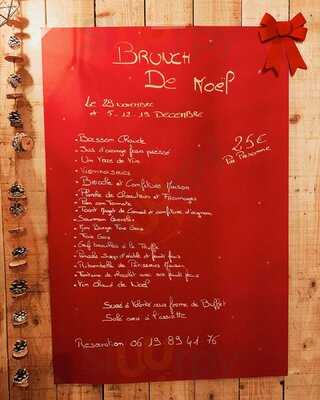 BRUNCH
DE NOËL
LE 28 NOVEMBRE
et 5 - 12 - 19 DECEMBRE
25€
Par Personne
- Boisson Chaude
- Jus d'orange frais pressé
- Un Verre de Vin
- Viennoiserie
- Brioche et Confitures Maison
- Planche de Charcuterie et Fromages
- Pain
- Toast Magret de Canard et confiture d'oignons
- Saumon
- Foie Gras
- Foie Gras
- Oeuf brouillés à la Truffe
- Pancake Sirop d'érable et fruits frais
- Ribambelle de Pâtisseries Maison
- Fontaine de chocolat avec ses fruits frais
- Vin Chaud de Noël
Sucré à Volonté sous forme de Buffet
Salé servi à l'assiette
Reservation 06 19 89 41 76